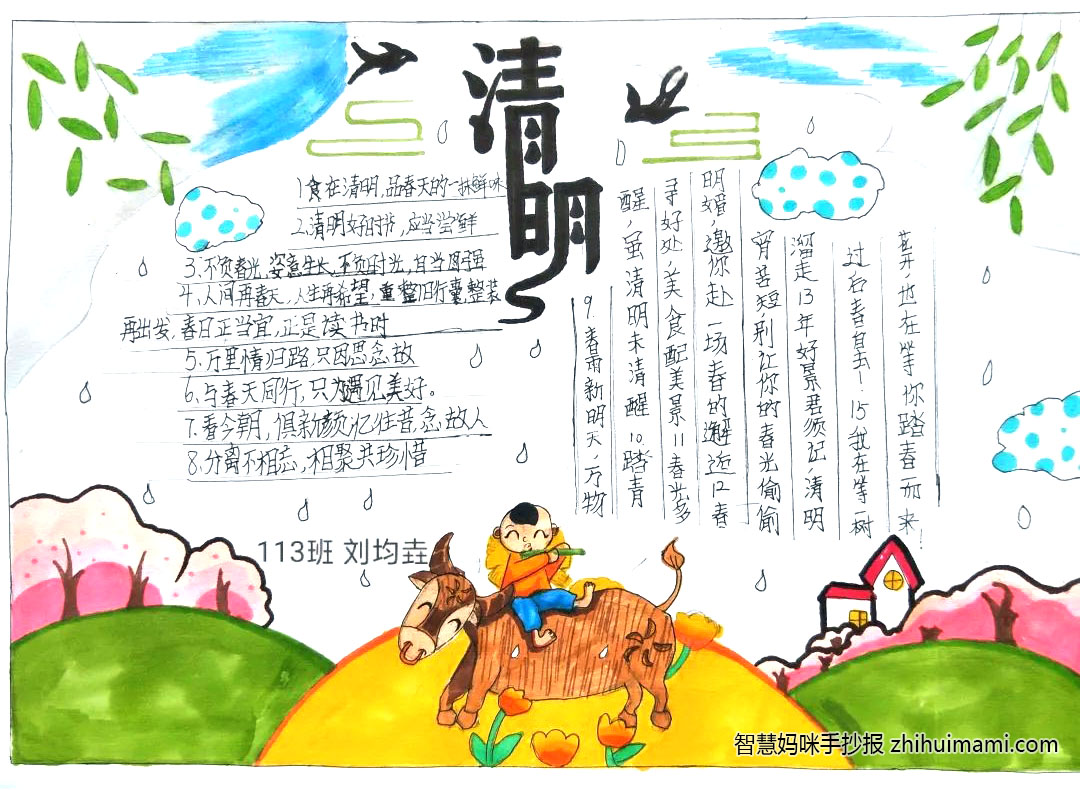 清明
1食在清明,品春天的一抹鲜味
2.清明好时节,应当尝鲜
3.不负春光,姿意生长,不负时光,自当图强
4,人间再春天,人生再希望,重整旧行囊,整装
再出发,春日正当宜,正是读书时
5.万里情归路,只因思念故
6.与春天同行,只为遇见美好。
7.看今朝,俱新颜,忆往昔,念故人
8.分离不相忘,相聚共珍惜
9.春雨新明天,万物
醒,虽清明未清醒10.踏青
寻好处,美食配美景11春光多
明媚,邀你赴一场春的邂逅12春
宵苦短,别让你的春光偷偷
溜走13年好景君须记,清明
过后春自去!15我在等一树
花开,也在等你踏春而来!
113班 刘均垚
智慧妈咪手抄报 zhihuimami.com